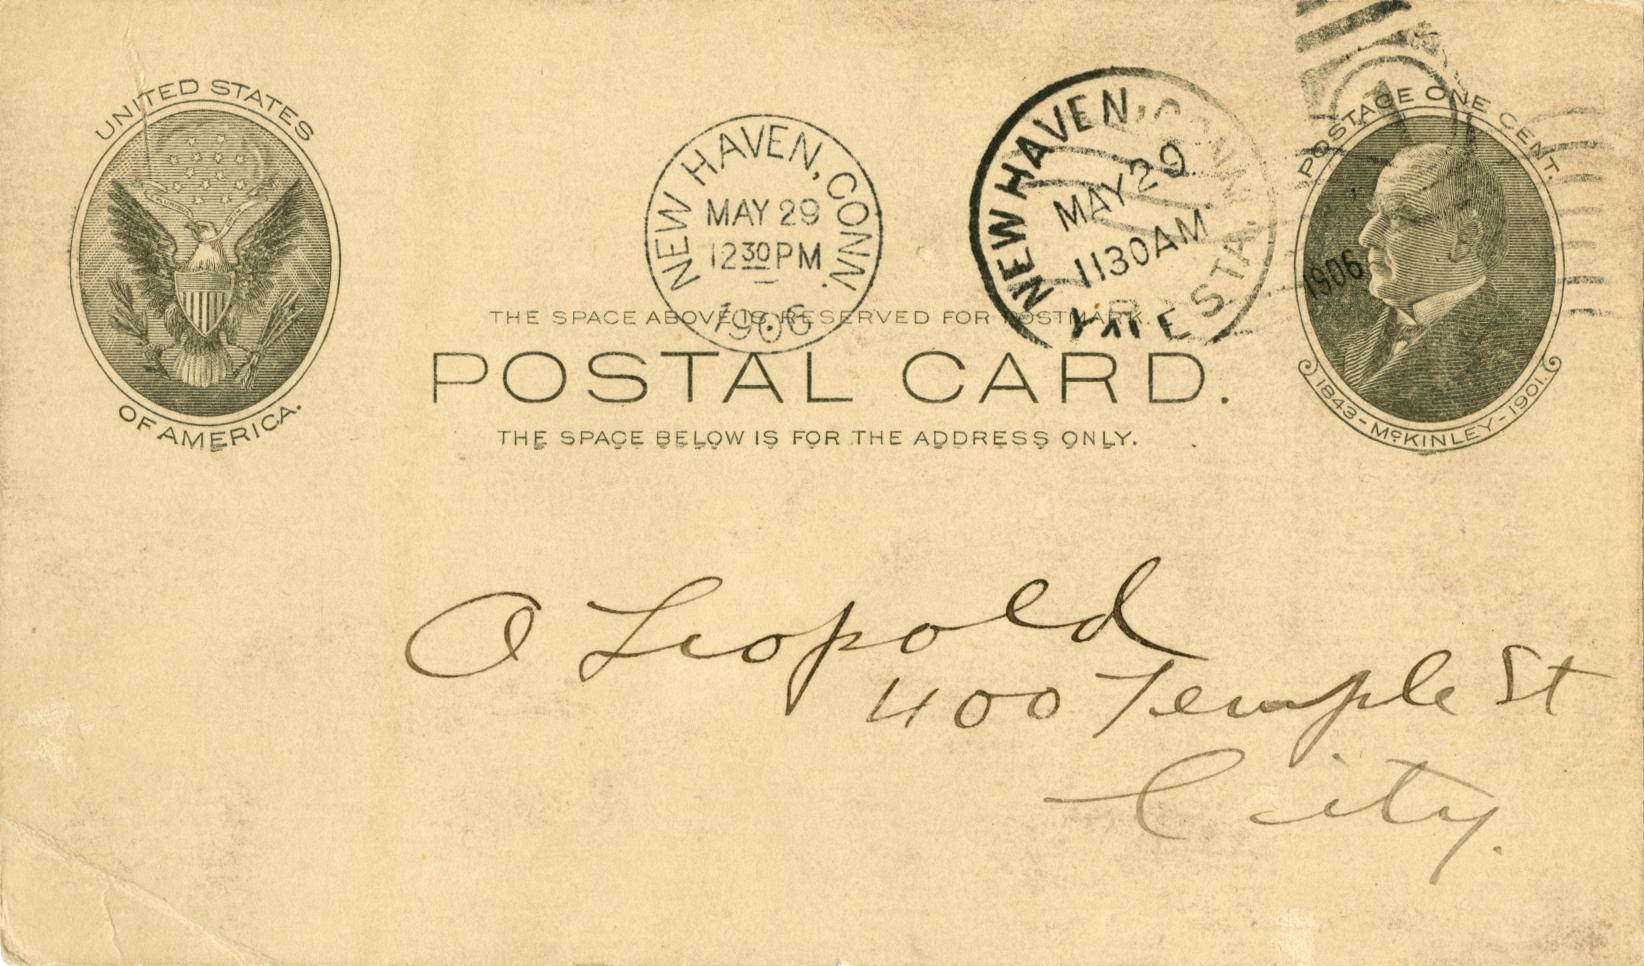 UNITED STATES
OF AMERICA.
NEW HAVEN, CONN.
MAY 29
12 30 PM
1906
NEW HAVEN, CONN.
MAY 29
11 30 AM
YALE STA.
1906
POSTAGE ONE CENT.
1843 - McKINLEY - 1901.
THE SPACE ABOVE IS RESERVED FOR POSTMARK.
POSTAL CARD.
THE SPACE BELOW IS FOR THE ADDRESS ONLY.
A Leopold
400 Temple St
City.